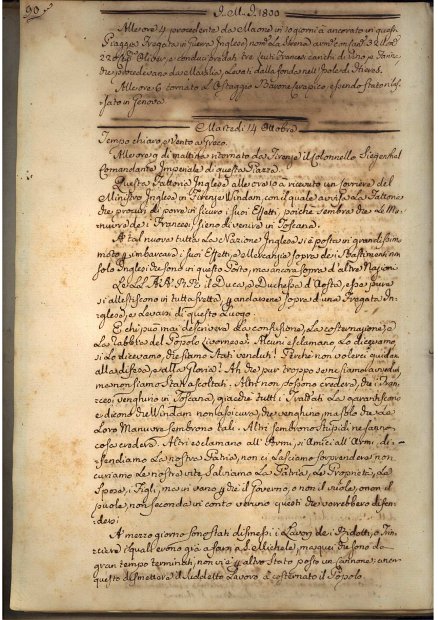 90.
J.M.D. 1800
All'ore 4 procedente da Maone in 10 giorni à ancorato in questa
Piaggia Fregata in Guerra Inglese nom.ta la Sirena arm. con Can. 32 ed e.
220 Cap. Oliver, e condusse tre Francesi carichi di Vino, e Tonno,
che procedevano da Marsilia, Levati dalla fonda nell'Isole di Hieres.
All'ore 6 tornato L'Ostaggio Barone essendo stato
sato in Genova
Martedì 14 Ottobre
Tempo chiaro, e Vento a Greco.
All'ore 9 di mattina ritornato da Firenze il Colonnello Siegenthal
Comandante Imperiale di questa Piazza.
Questa Fattoria Inglese all'ore 10 à ricevuto un Corriere del
Ministro Inglese in Firenze Windam, con il quale avvisa La Fattoria
che procuri di porre in sicuro i suoi Effetti, poiche sembra che La Ma-
nuvra de i Francesi sieno di venire in Toscana.
A tal nuova tutta La Nazione Inglese si è posta in grandissimo
moto, e imbarcare i suoi Effetti, e Mercanzie sopra de i Bastimenti non
solo Inglesi che sono in questo Porto, ma ancora sopra d'altre Nazioni
Le LL. AA. RR. il Duca, e Duchessa d'Aosta, essi pure
si allestiscono in tutta fretta per andarsene sopra d'una Fregata In-
glese, e Levarsi di questo Luogo
E chi può mai descrivere La confusione, La costernazione, e
La rabbia del Popolo Livornese? Alcuni esclamano Lo dicevamo
sì Lo dicevamo, che siamo Stati venduti! Perchè non volerci guidar
alla difesa, e alla Gloria? Ah che pur troppo
ma non siamo Stati ascoltati. Altri non possono credere, che i Fran-
cesi venghino in Toscana, giacchè tutti i Trattati La garantiscono
e dicono che Windam non assicura, che venghino, ma solo che La
Loro Manuvre sembrano tali. Altri sembrano Stupidi ne sanno
cosa credere. Altri esclamano all'Armi, sì Amici all'Armi, di-
fendiamo La nostra Patria, non ci Lasciamo sorprendere non
curiamo Le nostre vite, Salviamo La Patria, Le Proprietà, Le
Spose, i Figli, ma in vano, perchè il Governo, o non il vuole, o non il
può, e non seconda in conto veruno questi che vorrebbero difen-
dersi.
A mezzo giorno sono stati dismessi i Lavori de i Ridotti, e Trin-
ciere i quali erono già a fare a S. Michele, ma quei che sono da
gran tempo terminiti, non vi è per altro Stato posto un Cannone; anco
questo dismettere il suddetto Lavoro à costernato il Popolo.